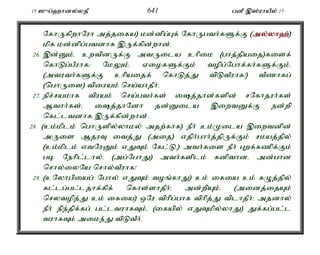 15 ஸுப்ஹானல்லதீ 641 பனீ இஸ்ராயீல் 17
கோருகிறாரோ அத்தகைய) மன்னிப்புக் கோருபவர்களுக்கு (அல்லாஹ்)
மிக மன்னிப்பவனாக இருக்கின்றான்.
26. இன்னும், உறவினருக்கு அவருடைய உரிமை (பாத்தியதை)களைக்
கொடுப்பீராக; மேலும், ஏழைகளுக்கும், வழிப்போக்கர்களுக்கும்,
(அவரவர்களுக்கு உரியதைக் கொடுத்து விடுவீராக!) வீணாகப்
(பொருளை) விரையம் செய்யாதீர்.
27. நிச்சயமாக விரயம் செய்பவர்கள் ஷைத்தான்களின் சகோதரர்கள்
ஆவார்கள்; ஷைத்தானோ தன்னுடைய இறைவனுக்கு நன்றி
கெட்டவனாக இருக்கின்றான்.
28. (உம்மிடம் பொருளில்லாமல் அதற்காக) நீர் உம்முடைய இறைவனின்
அருளை ஆதரவு வைத்து (அதை) எதிர்பார்த்திருக்கும் சமயத்தில்
(உம்மிடம் எவரேனும் எதுவும் கேட்டு,) அவர்களை நீர் புறக்கணிக்கும்
படி நேரிட்டால், (அப்போது) அவர்களிடம் கனிவான, அன்பான
சொல்லையே சொல்வீராக!
29. (உலோபியைப் போல் எதுவும் வழங்காது) உம் கையை உம் கழுத்தில்
கட்டப்பட்டதாக்கிக் கொள்ளாதீர்; அன்றியும், (அனைத்தையும்
செலவழித்து உம் கையை) ஒரே விரிப்பாக விரித்து விடாதீர்; அதனால்
நீர் நிந்திக்கப் பட்டவராகவும், (கையில் எதுவுமில்லாது) துக்கப்பட்ட
வராகவும் அமைந்து விடுவீர்.